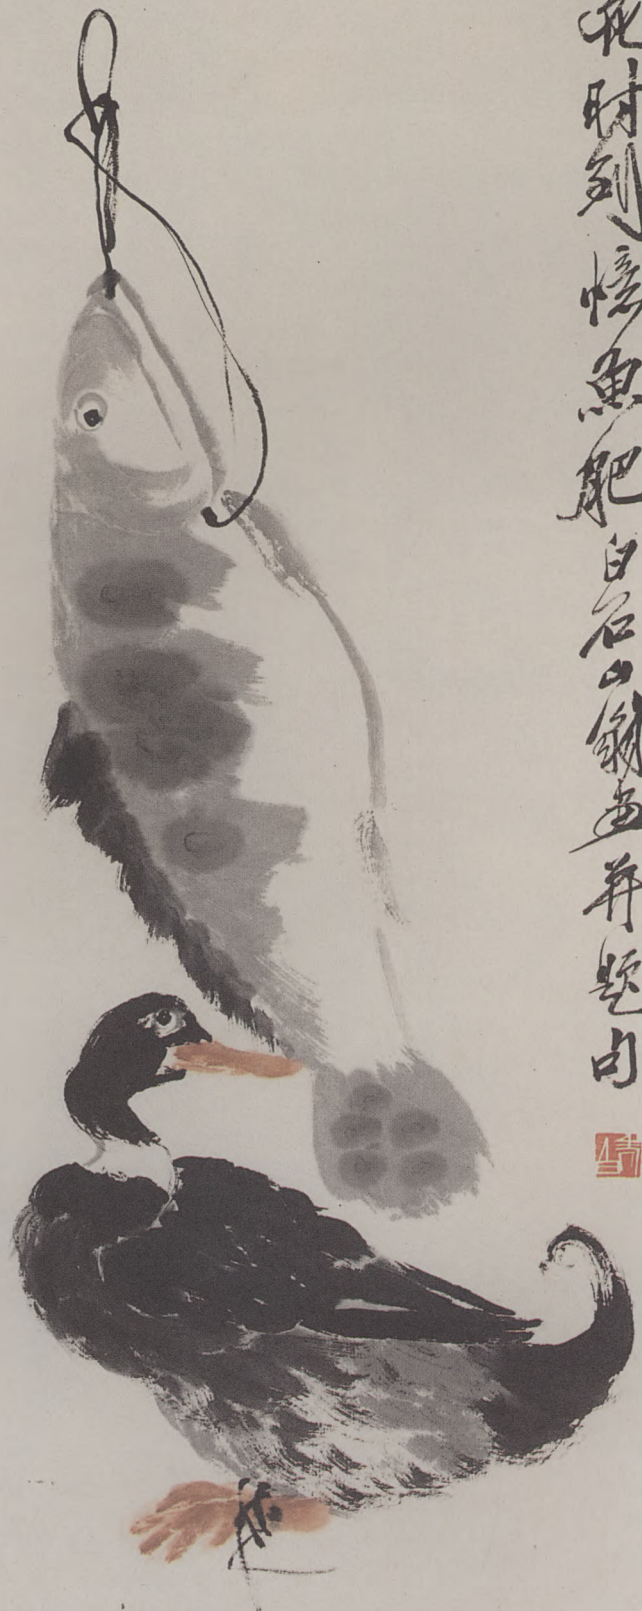 花时到憶魚肥白石山翁画并题句